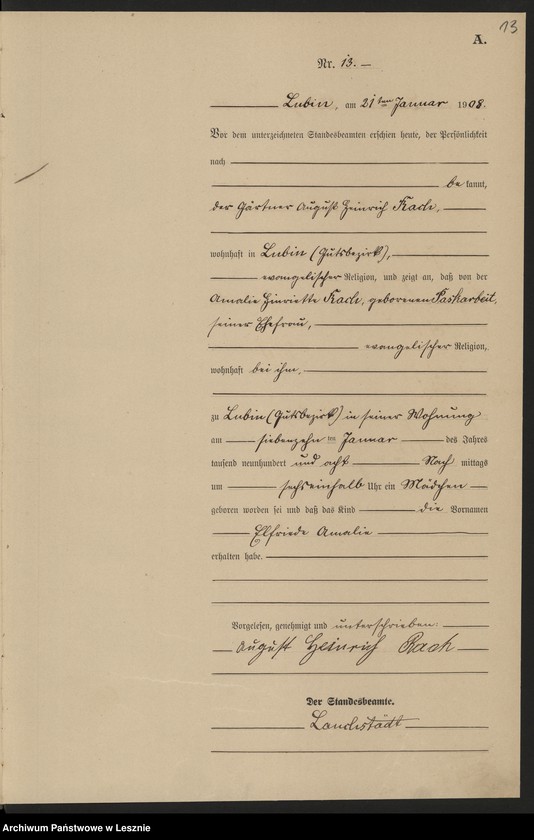 13
A.
Nr. 13.
Lubin, am 21ten Januar 1908.
Vor dem unterzeichneten Standesbeamten erschien heute, der Persönlichkeit
nach
be kannt,
der Gärtner August Heinrich Rach,
wohnhaft in Lubin (Gutsbezirk),
evangelischer Religion, und zeigt an, daß von der
Amalie Henriette Rach, geborenen
seiner Ehefrau,
evangelischer Religion,
wohnhaft bei ihm,
zu Lubin (Gutsbezirk) in seiner Wohnung
am siebenzehn ten Januar des Jahres
tausend neunhundert und acht Nach mittags
um sechseinhalb Uhr ein Mädchen
geboren worden sei und daß das Kind die Vornamen
Elfriede Amalie
erhalten habe.
Vorgelesen, genehmigt und unterschrieben:
August Heinrich Rach
Der Standesbeamte.
Archiwum Państwowe w Lesznie